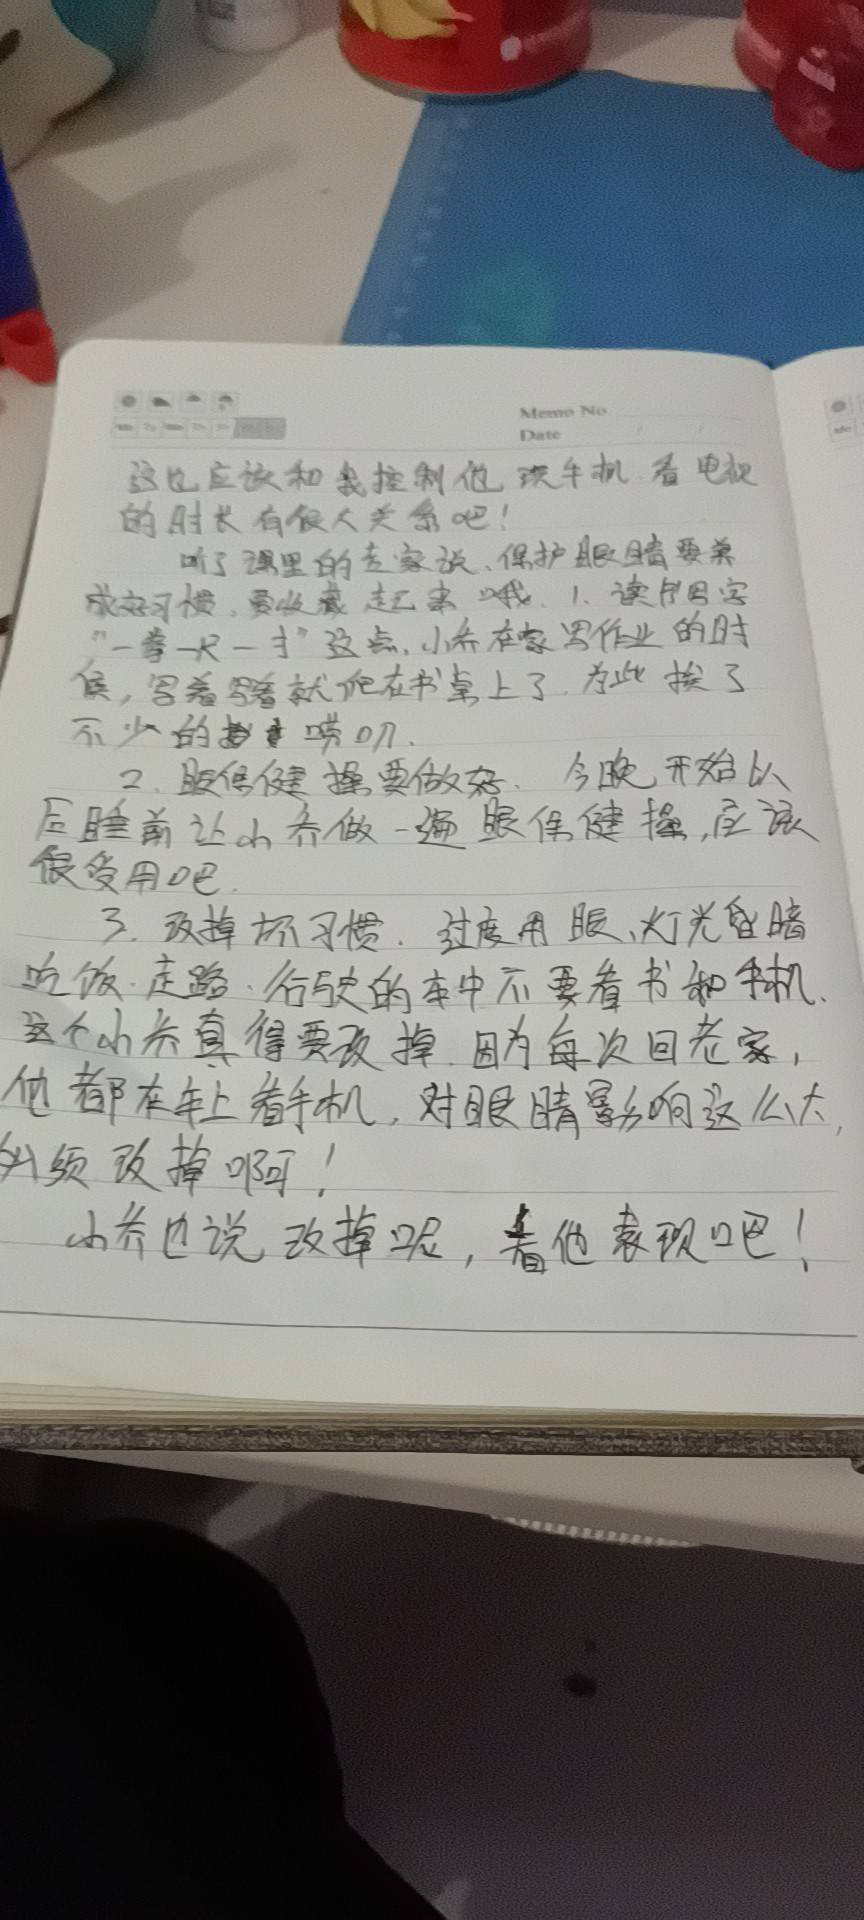 Memo No
Date
这也应该和我控制他玩手机.看电视
的时长有很大关系吧!
听了课里的专家说、保护眼睛要养
成好习惯、要收藏起来哦.1、读书写字
"一拳一尺一寸"这点、小乔在家写作业的时
候,写着写着就爬在书桌上了.为此挨了
不少的唠叨.
2、眼保健操要做好、今晚开始以
后睡前让小乔做一遍眼保健操,应该
很受用吧.
3.改掉坏习惯.过度用眼、灯光昏暗
吃饭.走路.行驶的车中不要看书和手机.
这个小乔真得要改掉.因为每次回老家,
他都在车上看手机,对眼睛影响这么大,
必须改掉啊!
小乔也说改掉呢,看他表现吧!